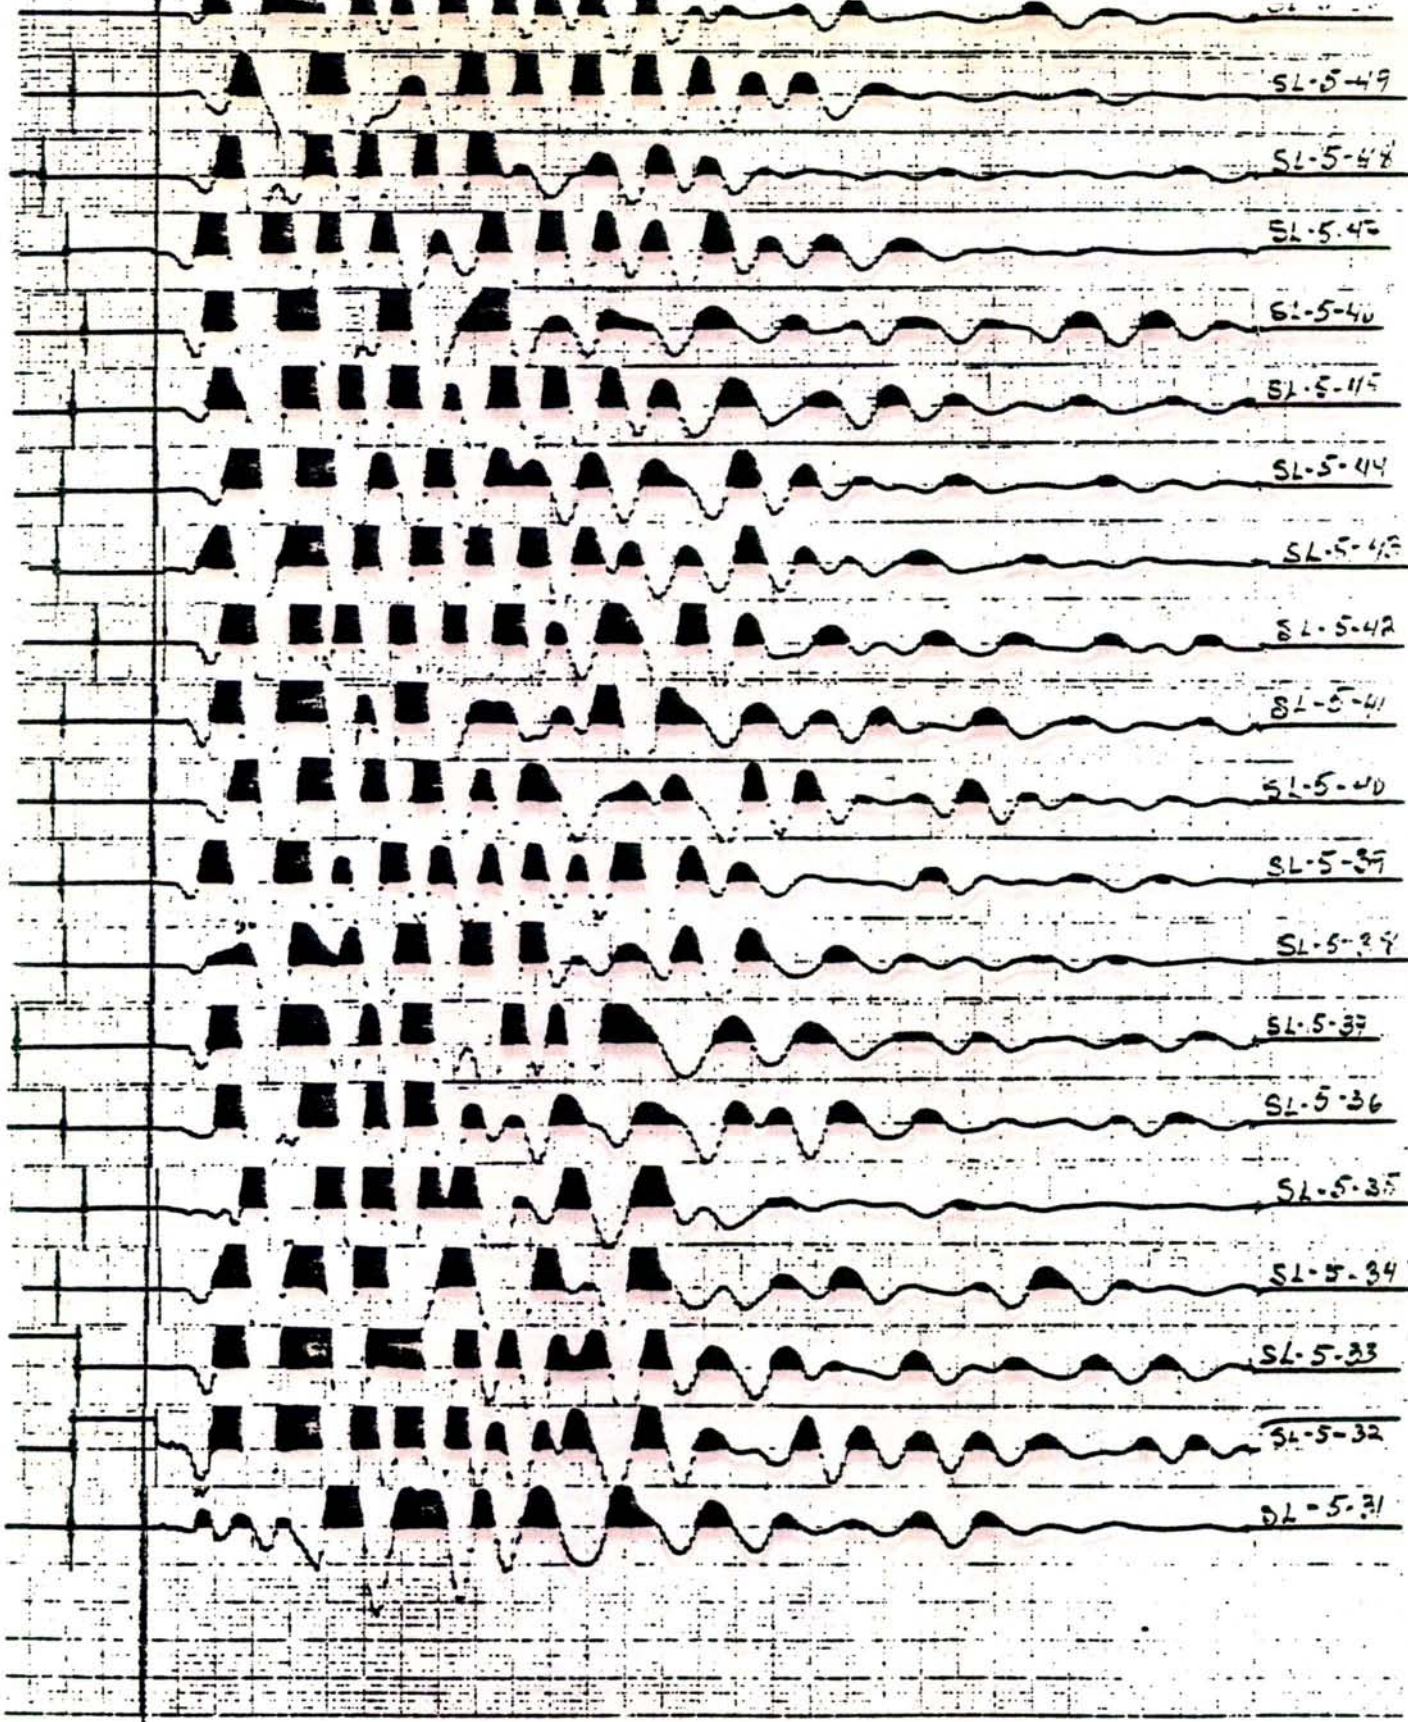 SL-5-49
SL-5-48
SL-5-45
SL-5-44
SL-5-43
SL-5-42
SL-5-41
SL-5-40
SL-5-39
SL-5-37
SL-5-36
SL-5-35
SL-5-34
SL-5-33
SL-5-32
SL-5-31